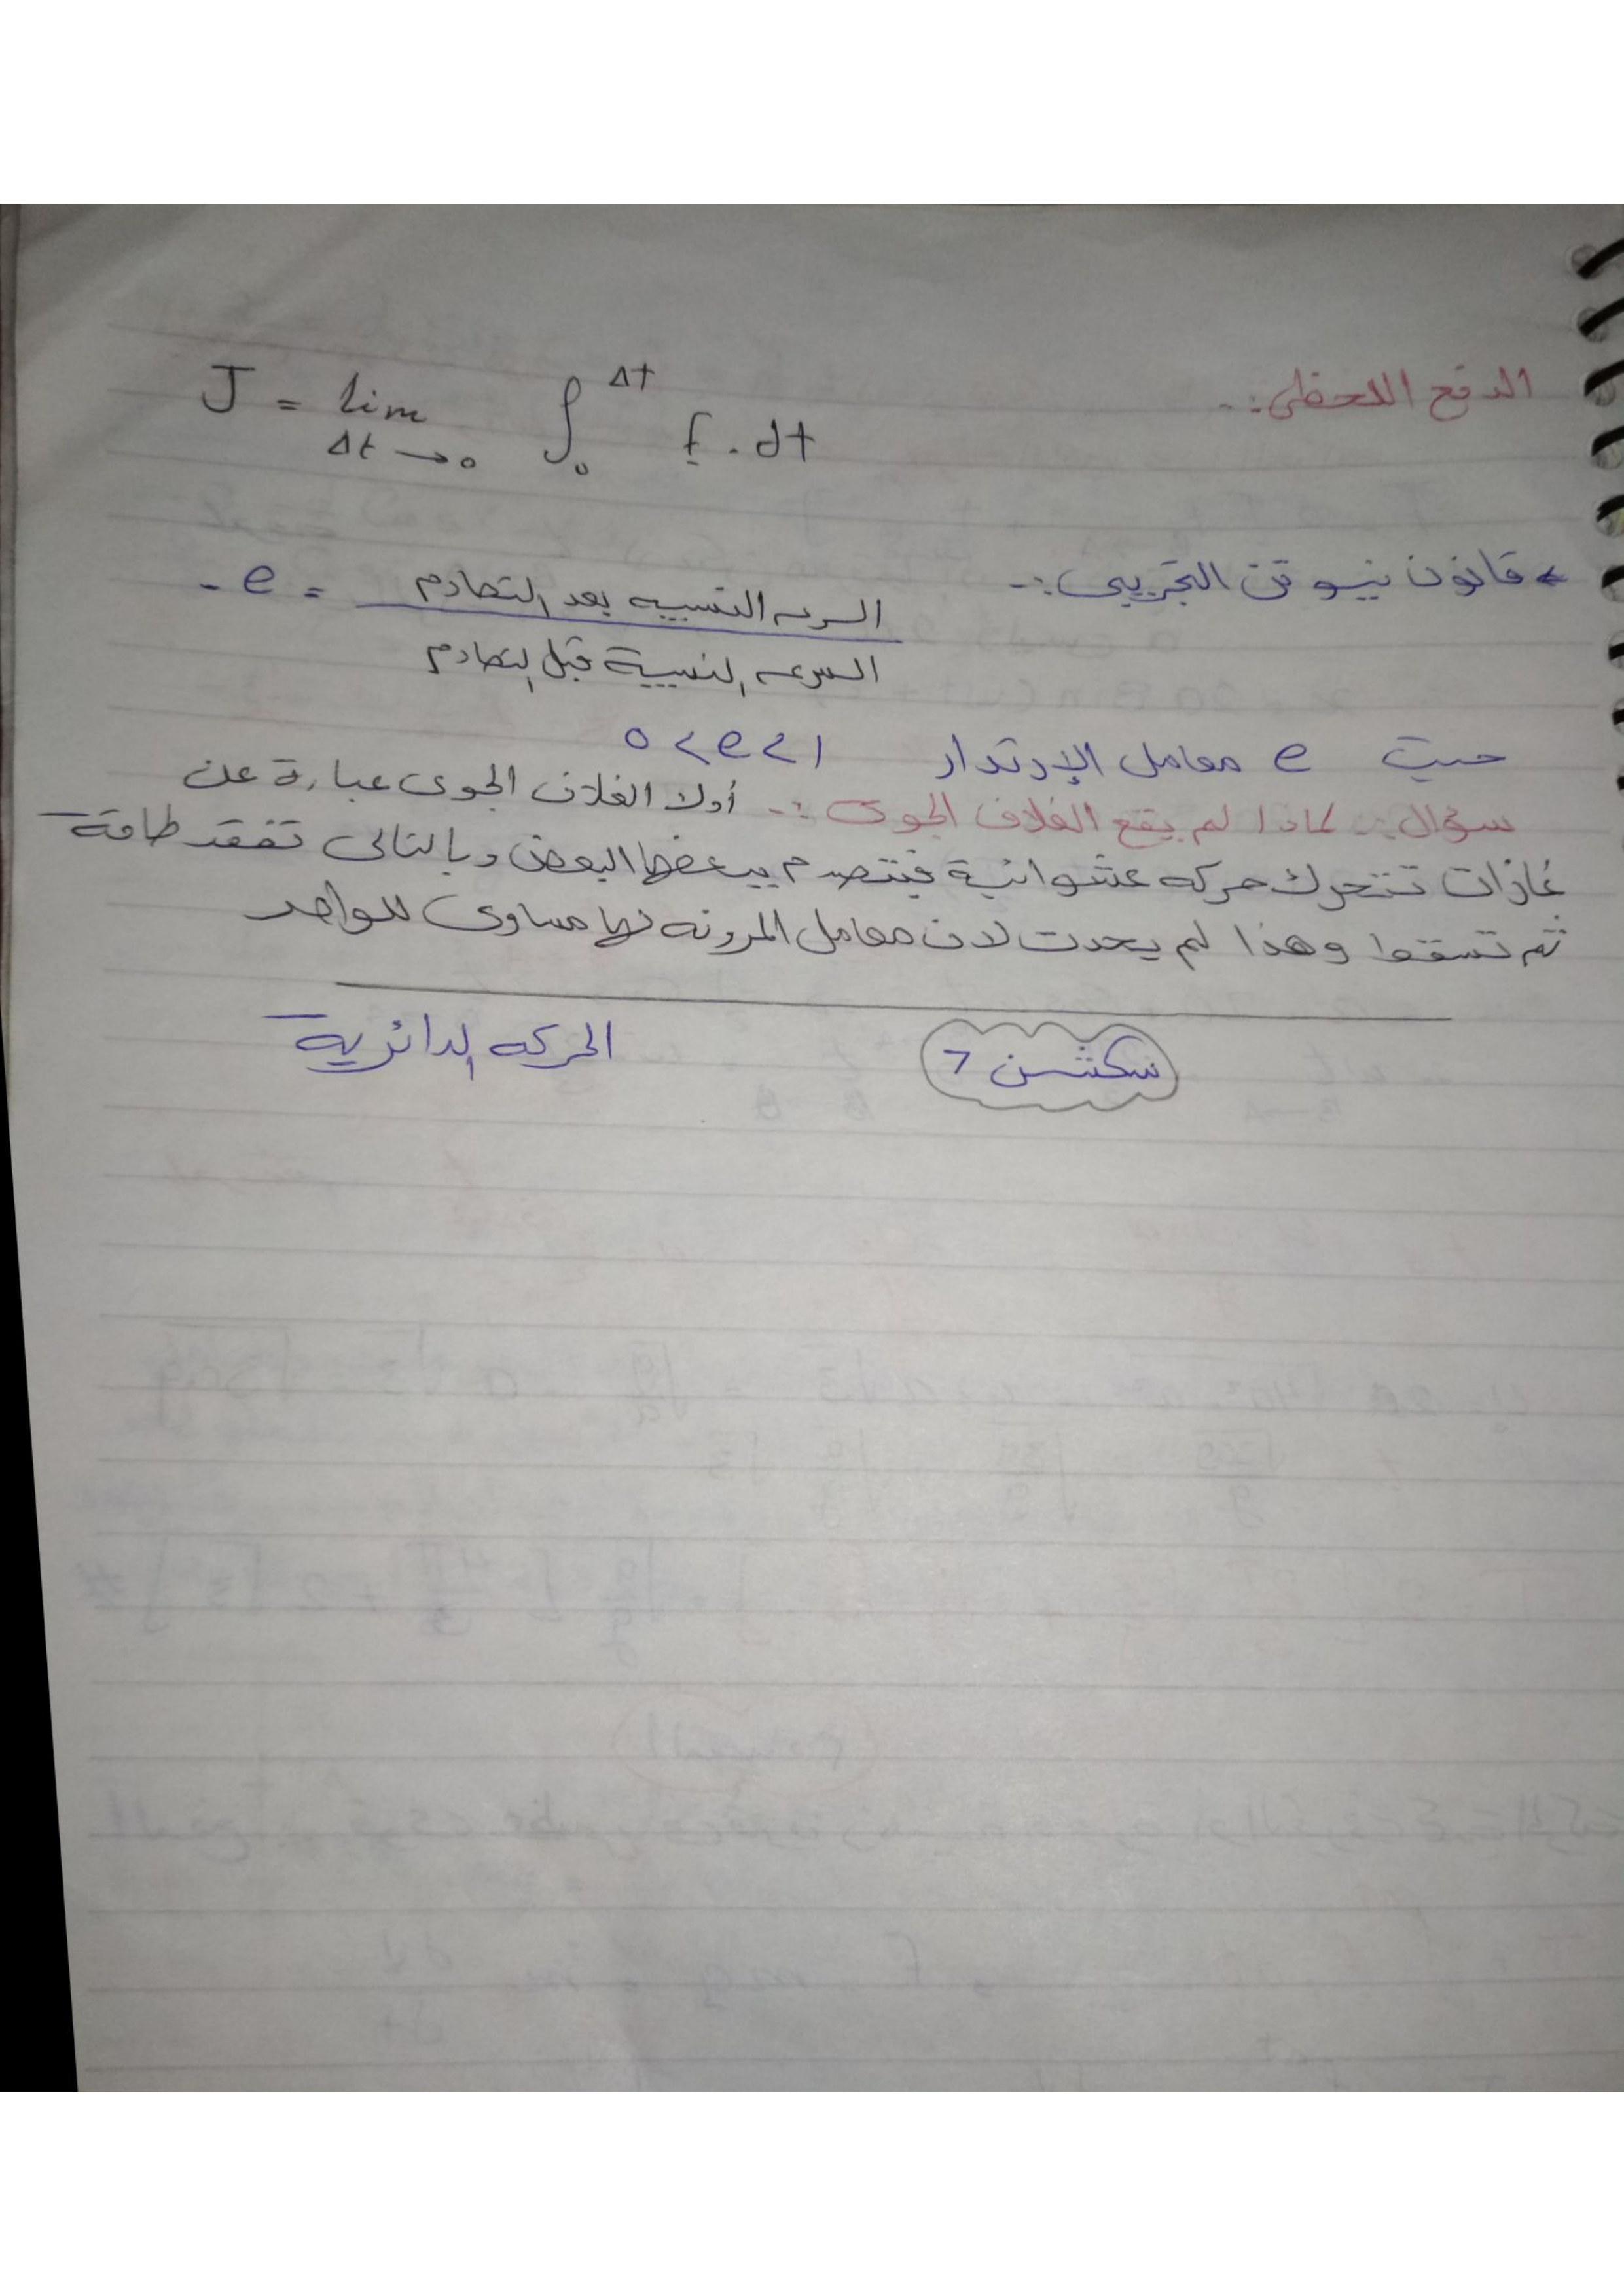 الدفع اللحظى:- J = lim Δt→0 ∫₀^Δt f . dt
← قانون نيوتن التجريبى:-
السرعه النسبيه بعد التصادم = - e
السرعه النسبية قبل التصادم
حيث e معامل الإرتدار 0 < e < 1
سؤال:- لماذا لم يقع الغلاف الجوى:- أولا الغلاف الجوى عبارة عن
غازات تتحرك حركه عشوائية فتتصدم ببعضها البعض وبالتالى تفقد طاقة
ثم تسقط وهذا لم يحدث لان معامل المرونه لها مساوى للواحد
سكشن 7 الحركه الدائرية